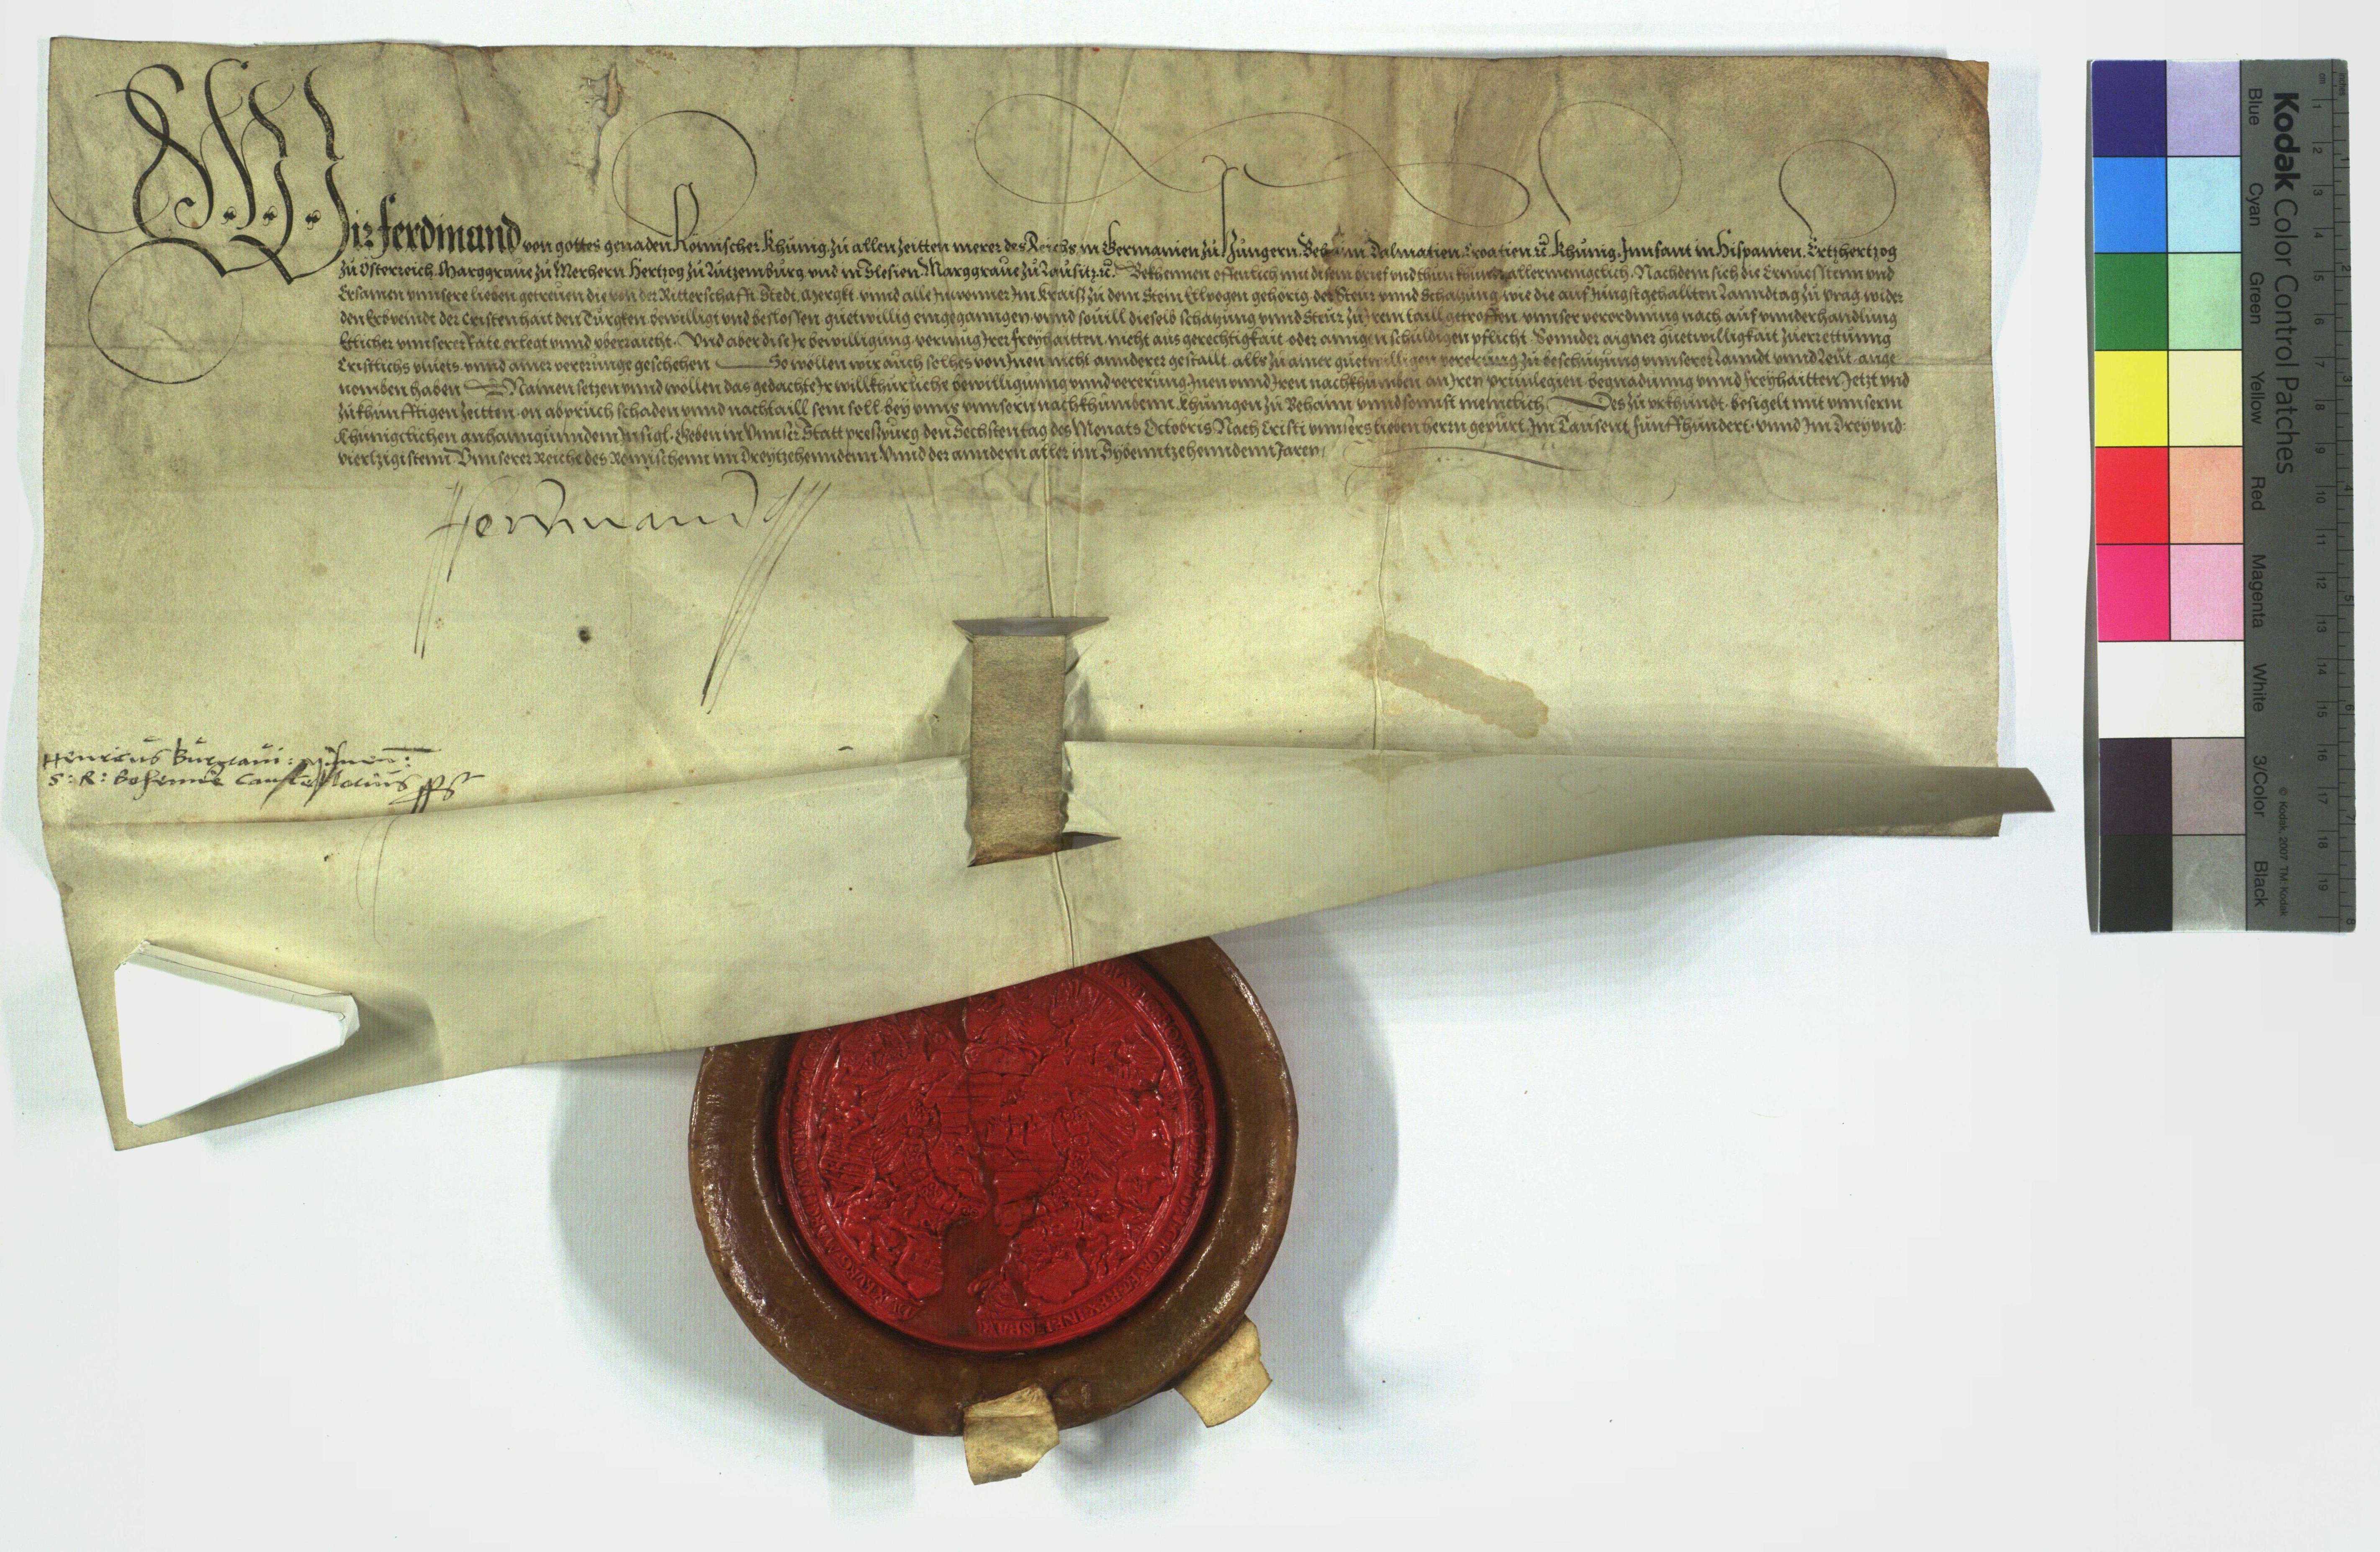 Wir Ferdinand von gottes genaden Römischer Khünig zu allen Zeitten merer des Reichs in Germanien zu Hungern Behaim Dalmatien Croatien rc. Khünig Innfant in Hispanien, Ertzhertzog
zu Österreich Marggraue zu Merhern Hertzog zu Lutzemburg vnd in Slesien Marggraue zu Lausitz rc. Bekhennen offentlich mit disem brief vnd thun khundt allermenigclich. Nachdem sich die Ernuessten vnnd
Ersamen vnnsere lieben getreuen die von der Ritterschafft Stedt, Mergkt vnnd alle Inwonner Im Kraiss zu dem Stein Elbogen gehörig der Steur vnnd Schatzung wie die auf Jungst gehallten Lanndtag zu Prag wider
den Erbveindt der Cristenhait den Türgken bewilligt vnd beslossen guetwillig eingeganngen vnnd souill dieselb schatzung vnnd Steur zu Irem taill getroffen vnnser verordnung nach auf vnnderhandlung
Etlicher vnnserer Räte erlegt vnnd vberraicht. Vnd aber dise Ir bewilligung vermüg Irer freyhaitten nicht aus gerechtigkait oder ainigen schuldigen pflicht Sonnder aigner guetwilligkait zu errettunng
Cristlichs pluets vnnd ainer vererunge geschehen So wollen wir auch solhes von Inen nicht annderer gestallt alls zu ainer guetwilligen vererung zu beschutzung vnnserer Lanndt vnnd Leut ange
nomben haben Mainen setzen vnnd wollen das gedachte Ir willkhürliche bewilligunng vnnd vererung Inen vnnd Iren nachkhumben an Iren priuilegien begnadunng vnnd freyhaitten Jetzt vnd
zu khunfftigen Zeitten on abpruch schaden vnnd nachtaill sein soll bey vnns vnnsern nachkhumbenn Khunigen zu Behaim vnnd sonnst meniclich Des zu vrkhundt besigelt mit vnnserm
Khunigclichen anhanngunndem Insigl. Geben in Vnnser Statt Prespurg den Sechsten tag des Monats Octobris Nach Cristi vnnsers lieben herrn gepurt Im Tausent funffhundert vnnd Im Dreyvnd:
viertzigistenn Vnnserer Reiche des Römischenn im Dreytzehenndenn Vnnd der anndern aller im Sybenntzehenndenn Jaren
Ferdinand
Henricus Burgraui: Misnen:
S: R: Bohemie Cancellarius sst
Kodak Color Control Patches
Blue Cyan Green Yellow Red Magenta White 3/Color Black
© Kodak, 2007 TM: Kodak
cm 1 2 3 4 5 6 7 8 9 10 11 12 13 14 15 16 17 18 19
inches 1 2 3 4 5 6 7 8